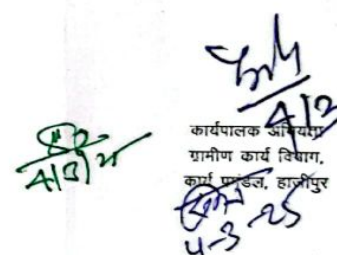 4/3
कार्यपालक अभियंता
4/3/25
ग्रामीण कार्य विभाग,
कार्य प्रमंडल, हाजीपुर
4-3-25